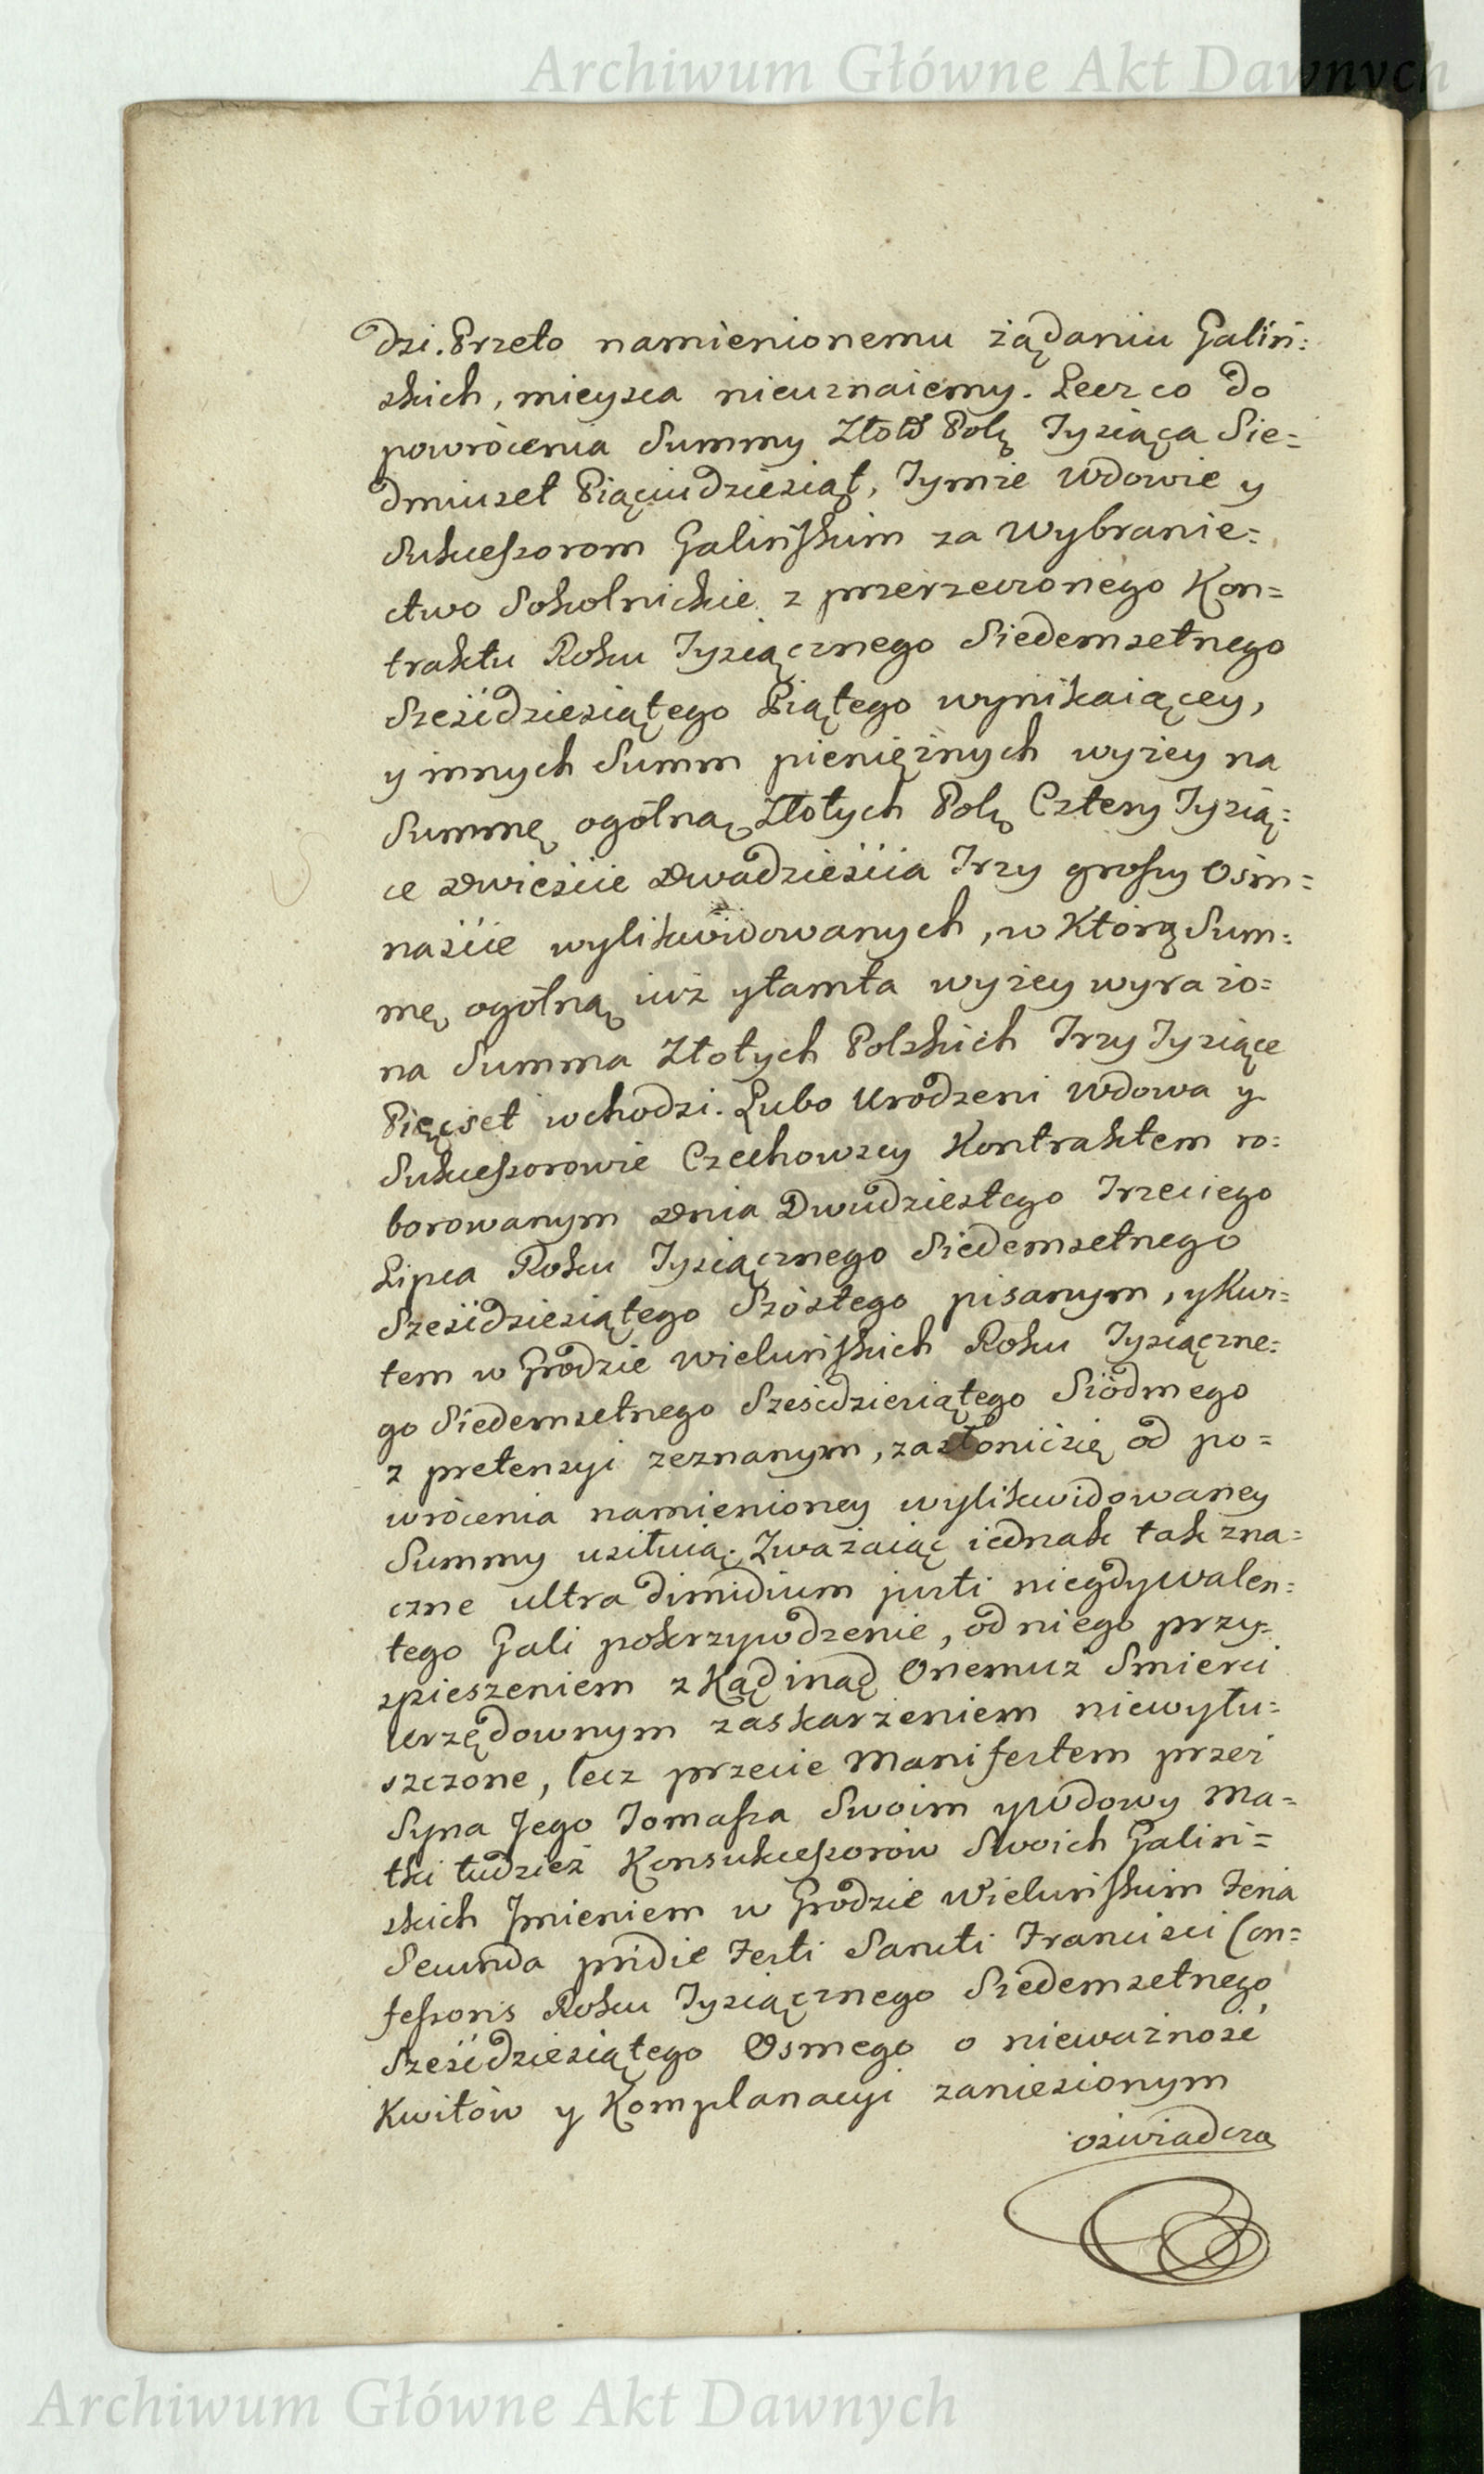 Archiwum Główne Akt Dawnych
dzi. Przeto namienionemu żądaniu Galiń=
skich, mieysca nieuznaiemy. Lecz co do
powrócenia Summy Złotỏ Polę Tysiąca Sie=
dmiuset Piąciudziesiąt, Tymże Wdowie y
Sukcessorom Galińskim za Wybranie=
ctwo Sokolnickie z przerzeczonego Kon=
traktu Roku Tysiącznego Siedemsetnego
Sześćdziesiątego Piątego wynikaiącey,
y innych Summ pieniężnych wyżey na
Summę ogólną Złotych Polę Cztery Tysią=
ce Dwieście Dwadzieścia Trzy groszy Ośm=
naście wylikwidowanych, w Którą Sum=
mę ogólną iuż y tamta wyżey wyrażo=
na Summa Złotych Polskich Trzy Tysiące
Pięćset wchodzi. Lubo Urodzeni Wdowa y
Sukcessorowie Czechowscy Kontraktem ro=
borowanym Dnia Dwudziestego Trzeciego
Lipca Roku Tysiącznego Siedemsetnego
Sześćdziesiątego Szóstego pisanym, y Kwi=
tem w Grodzie Wieluńskich Roku Tysiączne=
go Siedemsetnego Sześćdziesiątego Siódmego
z pretensyi zeznanym, zasłonić się od po=
wrócenia namienioney wylikwidowaney
Summy usiłuią. Zważaiąc iednak tak zna=
czne ultra dimidium justi niegdy Walen=
tego Gali pokrzywdzenie, od niego przy=
spieszeniem z Kąd inąd Onemuż Smierci
Urzędownym zaskarżeniem niewyłu=
szczone, lecz przecie Manifestem przez
Syna Jego Tomasza Swoim y Wdowy Ma=
tki tudzież Konsukcessorów Swoich Galiń=
skich Jmieniem w Grodzie Wieluńskim Feria
Secunda pridie Festi Sancti Francisci Con=
fessoris Roku Tysiącznego Siedemsetnego
Sześćdziesiątego Osmego o nieważność
Kwitów y Komplanacyi zaniesionym
oświadcza
Archiwum Główne Akt Dawnych